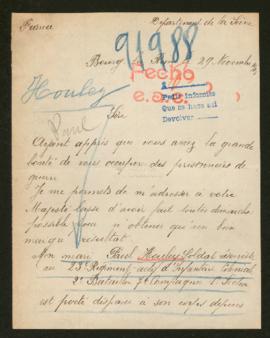 France Departement de la Seine
91988
Bourg la Reine 29 Novembre
Houley
Fecho
Pedir informes
Que se haga así
Devolver
Paul
Sire
Ayant appris que vous avez la grande
bonté de vous occuper des prisonniers de
guerre
Je me permets de m'adresser à votre
Majesté lasse d'avoir fait toutes démarches
possible pour n'obtenir qu'un bien
maigre résultat
Mon mari Paul Houley Soldat
au 23e Régiment d'Infanterie Colonial
2e Bataillon 7e Compagnie
est porté disparu à son corps depuis